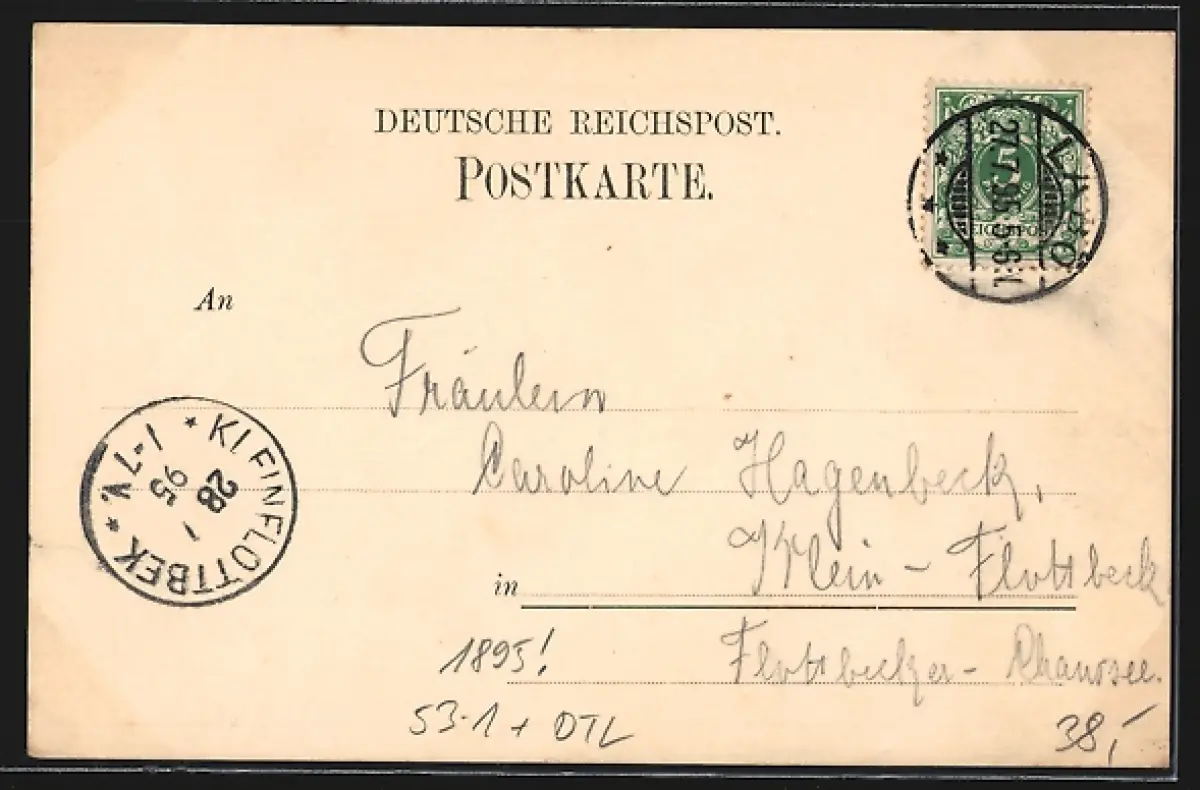 DEUTSCHE REICHSPOST.
POSTKARTE.
5
REICHSPOST
LABÖ
27.7.95.5-6.N.
An
Fräulein
Caroline Hagenbeck,
in Klein-Flottbeck
Flottbecker-Chaussee.
KLEINFLOTTBEK
28
95
7-8 V.
1895!
53-1 + DTL
38,-